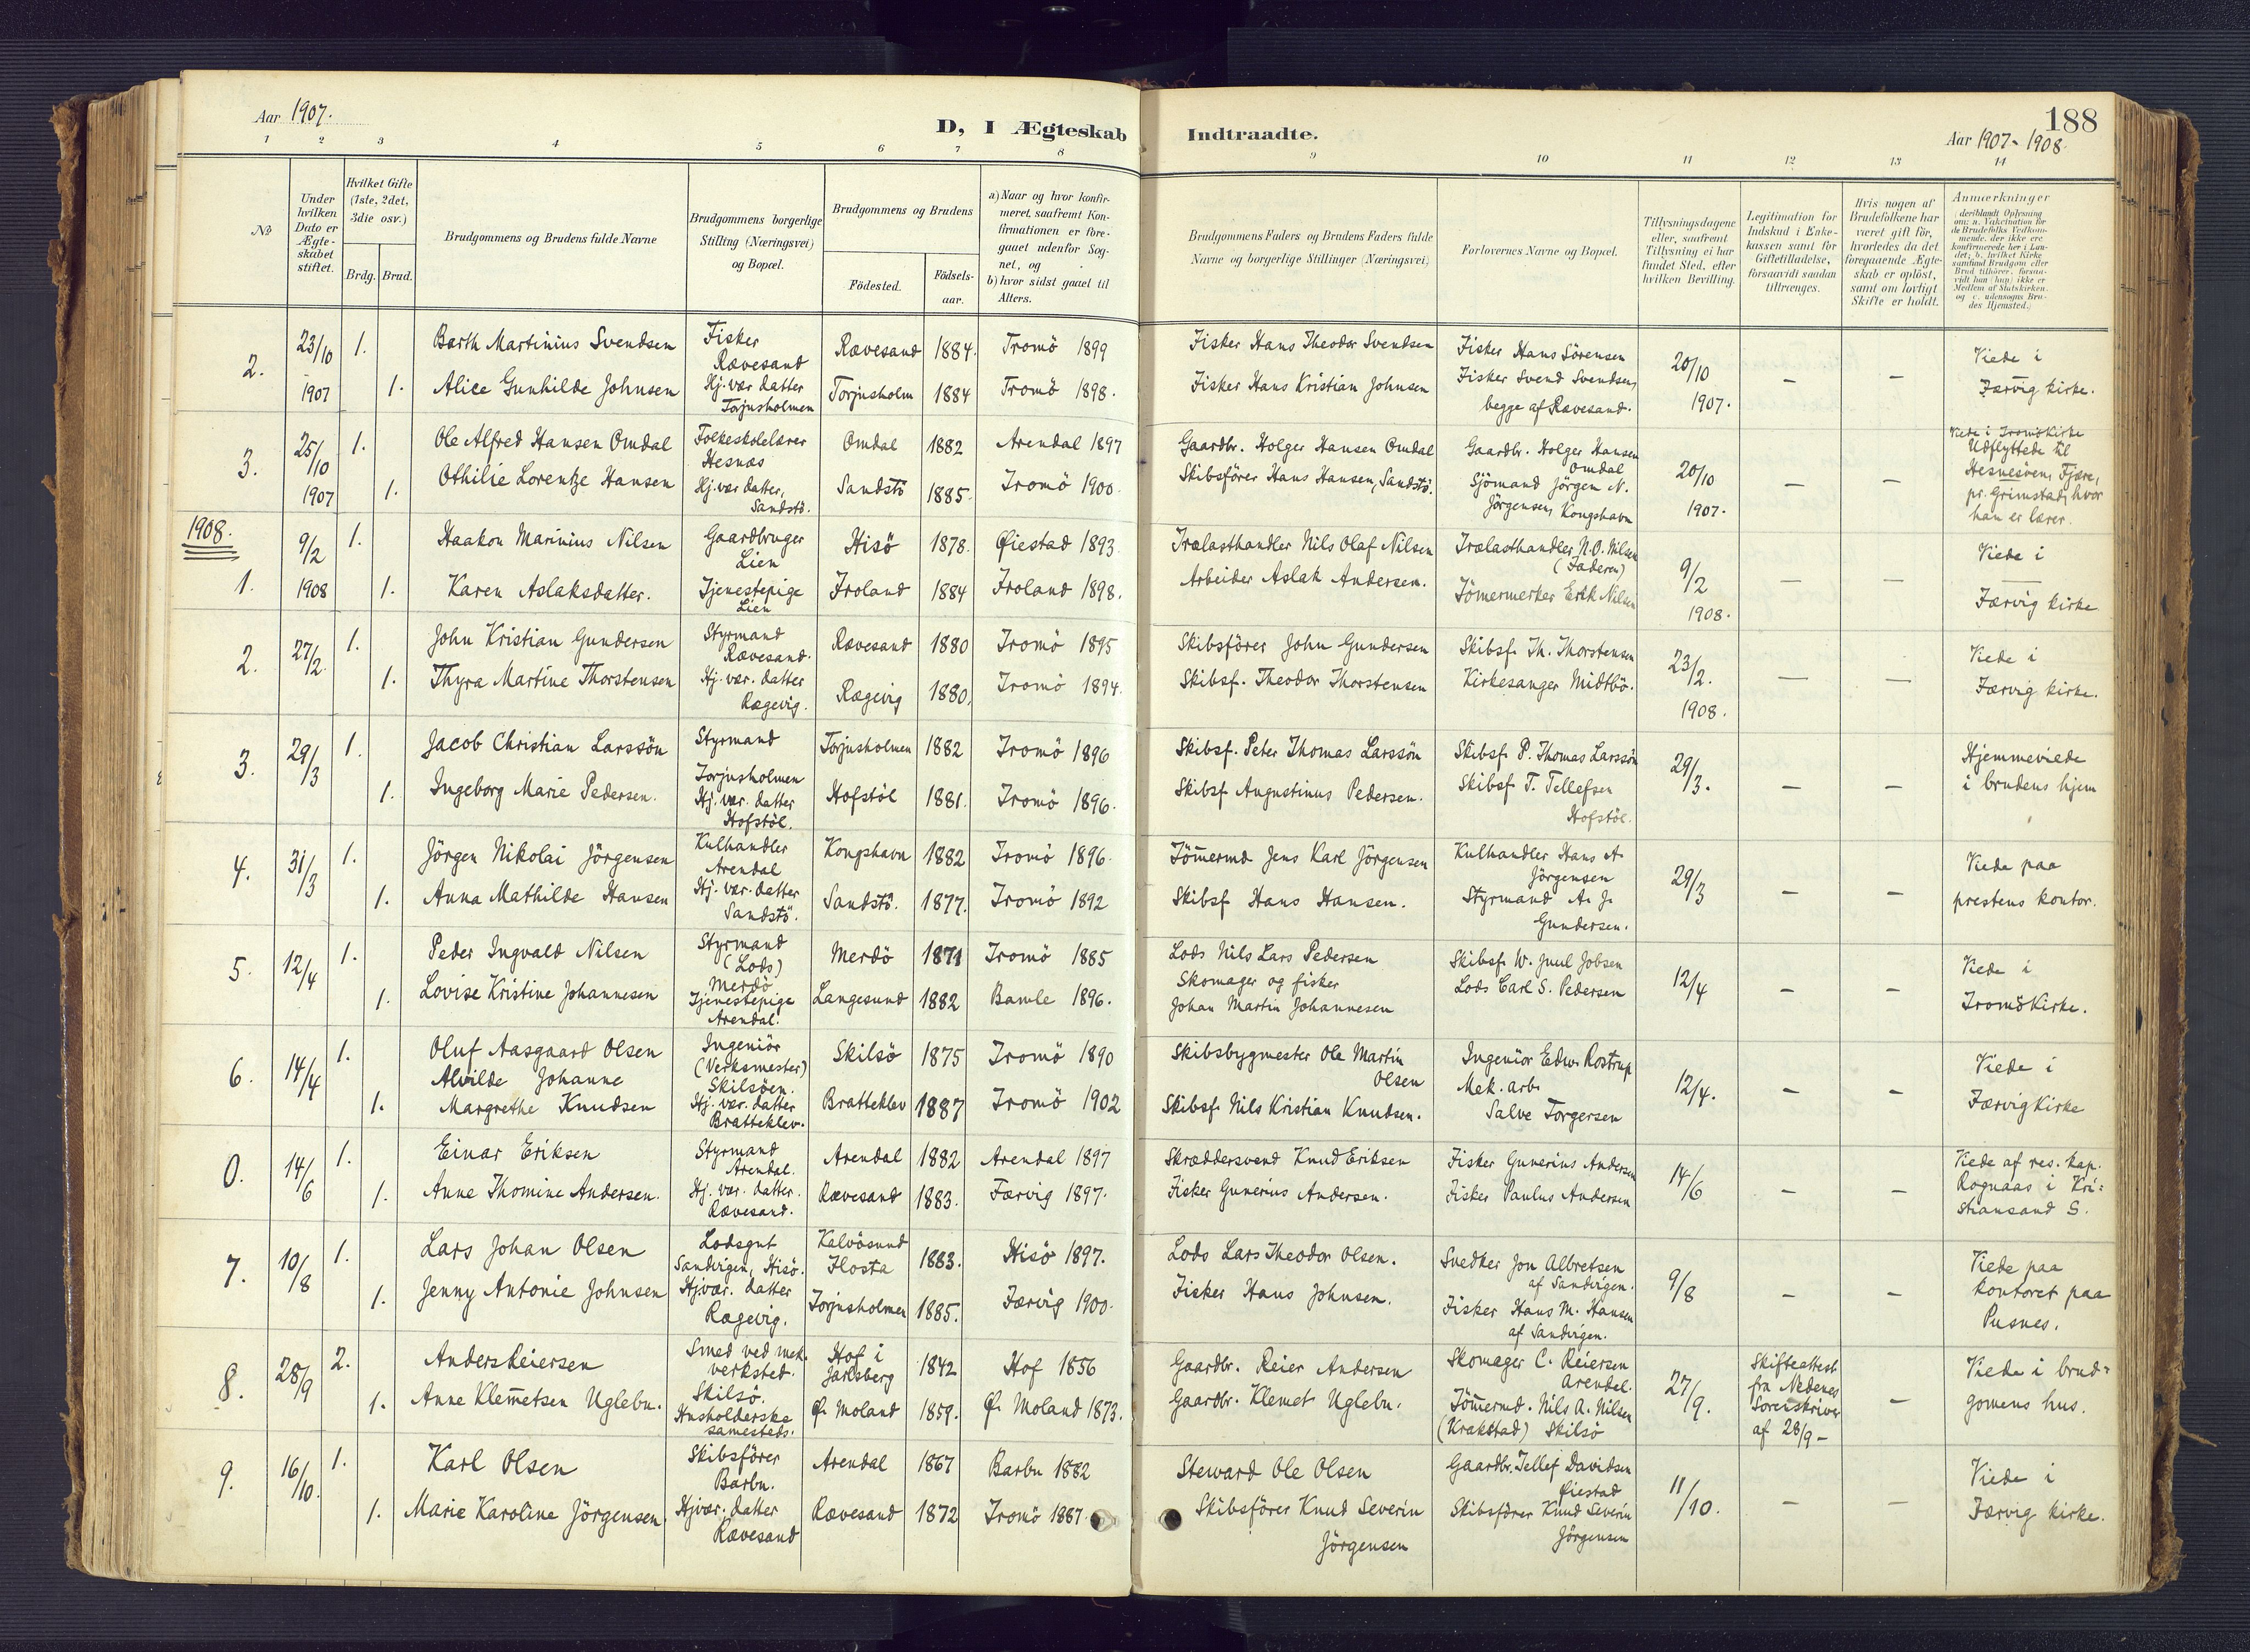 188
Aar 1907.
D, I Ægteskab Indtraadte.
Aar 1907-1908.
1 2 3 4 5 6 7 8 9 10 11 12 13 14
№
Under hvilken Dato er Ægteskabet stiftet.
Hvilket Gifte (1ste, 2det, 3die osv.)
Brdg. Brud.
Brudgommens og Brudens fulde Navne
Brudgommens borgerlige Stilling (Næringsvei) og Bopæl.
Brudgommens og Brudens
Födested.
Födsels-aar.
a) Naar og hvor konfir-
meret, saafremt Kon-
firmationen er fore-
gaaet udenfor Sog-
net, og
b) hvor sidst gaaet til
Alters.
Brudgommens Faders og Brudens Faders fulde
Navne og borgerlige Stillinger (Næringsvei)
Forlovernes Navne og Bopæl.
Tillysningsdagene
eller, saafremt
Tillysning ei har
fundet Sted, efter
hvilken Bevilling.
Legitimation for
Indskud i Enke-
kassen samt for
Giftetilladelse,
forsaavidt saadan
tiltrænges.
Hvis nogen af
Brudefolkene har
været gift för,
hvorledes da det
foregaaende Ægte-
skab er oplöst,
samt om lovligt
Skifte er holdt.
Anmærkninger
(deriblandt Oplysning
om: a. Vakcination for
de Brudefolks Vedkom-
mende, der ikke ere
konfirmerede her i Lan-
det; b. hvilket Kirke
samfund Brudgom eller
Brud tilhörer, forsaa-
vidt han (hun) ikke er
Medlem af Statskirken.
og c. udensogns Bru-
des Hjemsted.)
2. 23/10 1907 1. Barth Martinius Svendsen Fisker Rævesand Rævesand 1884. Tromö 1899 Fisker Hans Theodor Svendsen Fisker Hans Sörensen 20/10 1907. - - Viede i
1. Alice Gunhilde Johnsen Hj. vær datter Torjusholmen Torjusholm 1884 Tromö 1898. Fisker Hans Kristian Johnsen Fisker Svend Svendsen, begge af Rævesand. Færvig kirke.
3. 25/10 1907 1. Ole Alfred Hansen Omdal Folkeskolelærer Hesnæs Omdal 1882 Arendal 1897 Gaardbr. Holger Hansen Omdal Gaardbr. Holger Hansen Omdal 20/10 1907. - - Viede i Tromö Kirke
1. Othilie Lorentze Hansen Hj. vær datter, Sandstö. Sandstö 1885. Tromö 1900. Skibsförer Hans Hansen, Sandstö. Sjömand Jörgen N. Jörgensen, Kongshavn Udflyttede til Hesnesöen, Fjære, pr. Grimstad, hvor han er lærer.
1908.
1. 9/2 1908 1. Haakon Marinius Nilsen Gaardbruger Lien Hisö 1878. Öiestad 1893. Trælasthandler Nils Olaf Nilsen Trælasthandler N.O. Nilsen (Faderen) 9/2 1908. - - Viede i
1. Karen Aslaksdatter. Tjenestepige Lien Froland 1884 Froland 1898. Arbeider Aslak Andersen. Tömermerker Erik Nilsen Færvig kirke
2. 27/2. 1. John Kristian Gundersen Styrmand Rævesand. Rævesand 1880 Tromö 1895 Skibsförer John Gundersen Skibsf. Th. Thorstensen 23/2. 1908. - - Viede i
1. Thyra Martine Thorstensen Hj. vær. datter Rægevig. Rægevig 1880. Tromö 1894. Skibsf. Theodor Thorstensen Kirkesanger Midtbö. Færvig kirke.
3. 29/3 1. Jacob Christian Larssön Styrmand Torjusholmen Torjusholmen 1882 Tromö 1896 Skibsf. Peter Thomas Larssön Skibsf. P. Thomas Larssön 29/3. - - Hjemmeviede
1. Ingeborg Marie Pedersen. Hj. vær. datter Hofstöl. Hofstöl 1881. Tromö 1896. Skibsf Augustinus Pedersen. Skibsf T. Tellefsen Hofstöl. i brudens hjem
4. 31/3 1. Jörgen Nikolai Jörgensen Kulhandler Arendal Kongshavn 1882 Tromö 1896. Tömermd Jens Karl Jörgensen Kulhandler Hans A. Jörgensen 29/3 - - Viede paa
1. Anna Mathilde Hansen Hj. vær. datter Sandstö. Sandstö. 1877. Tromö 1892 Skibsf Hans Hansen. Styrmand A. J. Gundersen. prestens kontor.
5. 12/4 1. Peder Ingvald Nilsen Styrmand (Lods) Merdö Merdö 1871 Tromö 1885 Lods Nils Lars Pedersen Skibsf. W. Juul Jobsen 12/4 - - Viede i
1. Lovise Kristine Johannesen Tjenestepige Arendal. Langesund 1882 Bamle 1896. Skomager og fisker Johan Martin Johannesen Lods Carl S. Pedersen Tromö Kirke.
6. 14/4 1. Oluf Aasgaard Olsen Ingeniör (Verksmester) Skilsöen. Skilsö 1875 Tromö 1890 Skibsbygmester Ole Martin Olsen Ingeniör Edw. Rostrup 12/4. - - Viede i
1. Alvilde Johanne Margrethe Knudsen Hj. vær. datter Bratteklev. Bratteklev 1887 Tromö 1902 Skibsf. Nils Kristian Knudsen. Mek. arb. Salve Torgersen Færvig Kirke
0. 14/6 1. Einar Eriksen Styrmand Arendal. Arendal 1882 Arendal 1897 Skræddersvend Knud Eriksen Fisker Gunerius Andersen 14/6 - - Viede af res. kap.
1. Anne Thomine Andersen. Hj. vær. datter. Rævesand. Rævesand 1883. Færvig 1897. Fisker Gunerius Andersen. Fisker Paulus Andersen Rognaas i Kri=stiansand S.
7. 10/8 1. Lars Johan Olsen Lodsgut Sandvigen, Hisö. Kalvösund Flosta 1883. Hisö 1897. Lods Lars Theodor Olsen. Snedker Jon Albretsen af Sandvigen. 9/8 - - Viede paa
1. Jenny Antonie Johnsen Hj.vær. datter Rægevig. Torjusholmen 1885. Færvig 1900. Fisker Hans Johnsen. Fisker Hans M. Hansen af Sandvigen. kontoret paa Pusnes.
8. 28/9 2. Anders Reiersen Smed ved mek. verksted. Skilsö. Hof i Jarlsberg 1842 Hof 1856 Gaardbr. Reier Andersen Skomager C. Reiersen Arendal. 27/9. Skifteattest fra Nedenes Sorenskriver af 28/9 - - Viede i brud=
1. Anne Klemetsen Uglebu. Husholderske samesteds. Ø. Moland 1859. Ø. Moland 1873. Gaardbr. Klemet Uglebu. Tömermd. Nils A. Nilsen (Krakstad) Skilsö gomens hus.
9. 16/10. 1. Karl Olsen Skibsförer Barbu. Arendal 1867 Barbu 1882 Steward Ole Olsen Gaardbr. Tellef Davidsen Øiestad 11/10. - - Viede i
1. Marie Karoline Jörgensen. Hj.vær. datter Rævesand Rævesand 1872 Tromö 1887. Skibsförer Knud Severin Jörgensen Skibsförer Knud Severin Jörgensen Færvig kirke.